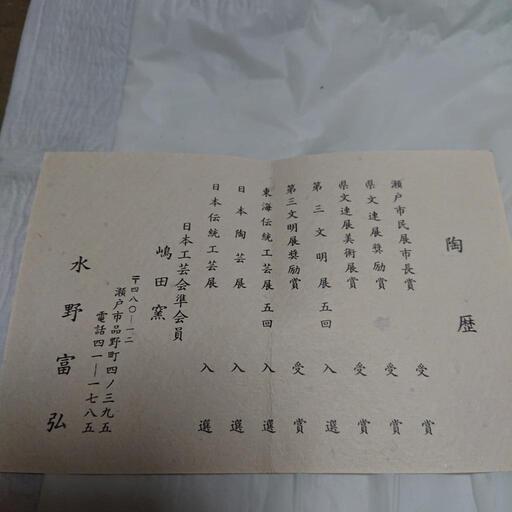 陶歴
瀬戸市民展市長賞 受賞
県文連展奨励賞 受賞
県文連展美術展賞 受賞
第三文明展五回 入選
第三文明展奨励賞 受賞
東海伝統工芸展五回 入選
日本陶芸展 入選
日本伝統工芸展 入選
日本工芸会準会員
嶋田窯
〒四八〇―一二
瀬戸市品野町四ノ三九五
電話四一―一七八五
水野富弘